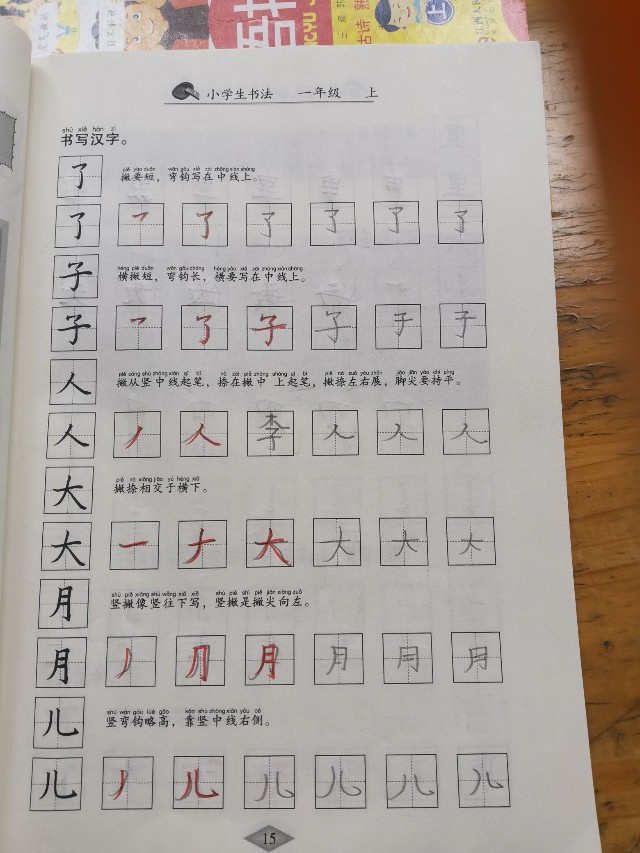 小学生书法 一年级 上
shū xiě hàn zì
书写汉字。
了
piě yào duǎn wān gōu xiě zài zhōng xiàn shàng
撇要短，弯钩写在中线上。
了 了 了 了 了 了
子
héng piě duǎn wān gōu cháng héng yào xiě zài zhōng xiàn shàng
横撇短，弯钩长，横要写在中线上。
子 了 子 子 子 子
人
piě cóng shù zhōng xiàn qǐ bǐ nà zài piě zhōng shàng qǐ bǐ piě nà zuǒ yòu zhǎn jiǎo jiān yào chí píng
撇从竖中线起笔，捺在撇中 上起笔，撇捺左右展，脚尖要持平。
人 丿 人 李 人 人 人
大
piě nà xiāng jiāo yú héng xià
撇捺相交于横下。
大 一 ナ 大 大 大 大
月
shù piě xiàng shù wǎng xià xiě shù piě shì piě jiān xiàng zuǒ
竖撇像竖往下写，竖撇是撇尖向左。
月 丿 月 月 月 月
儿
shù wān gōu lüè gāo kào shù zhōng xiàn yòu cè
竖弯钩略高，靠竖中线右侧。
儿 丿 儿 儿 儿 儿 儿
15